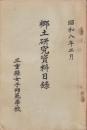 昭和八年三月
郷土研究資料目録
三重縣女子師範學校